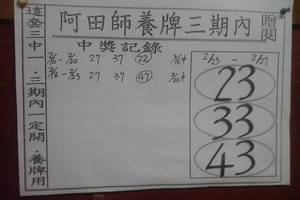 阿田師養牌三期內
贈閱
這套三中一．三期內一定開．養牌用
中獎記錄
2/16-2/20 27 37 22
2/18-2/23 27 37 47
2/23-2/27
23
33
43